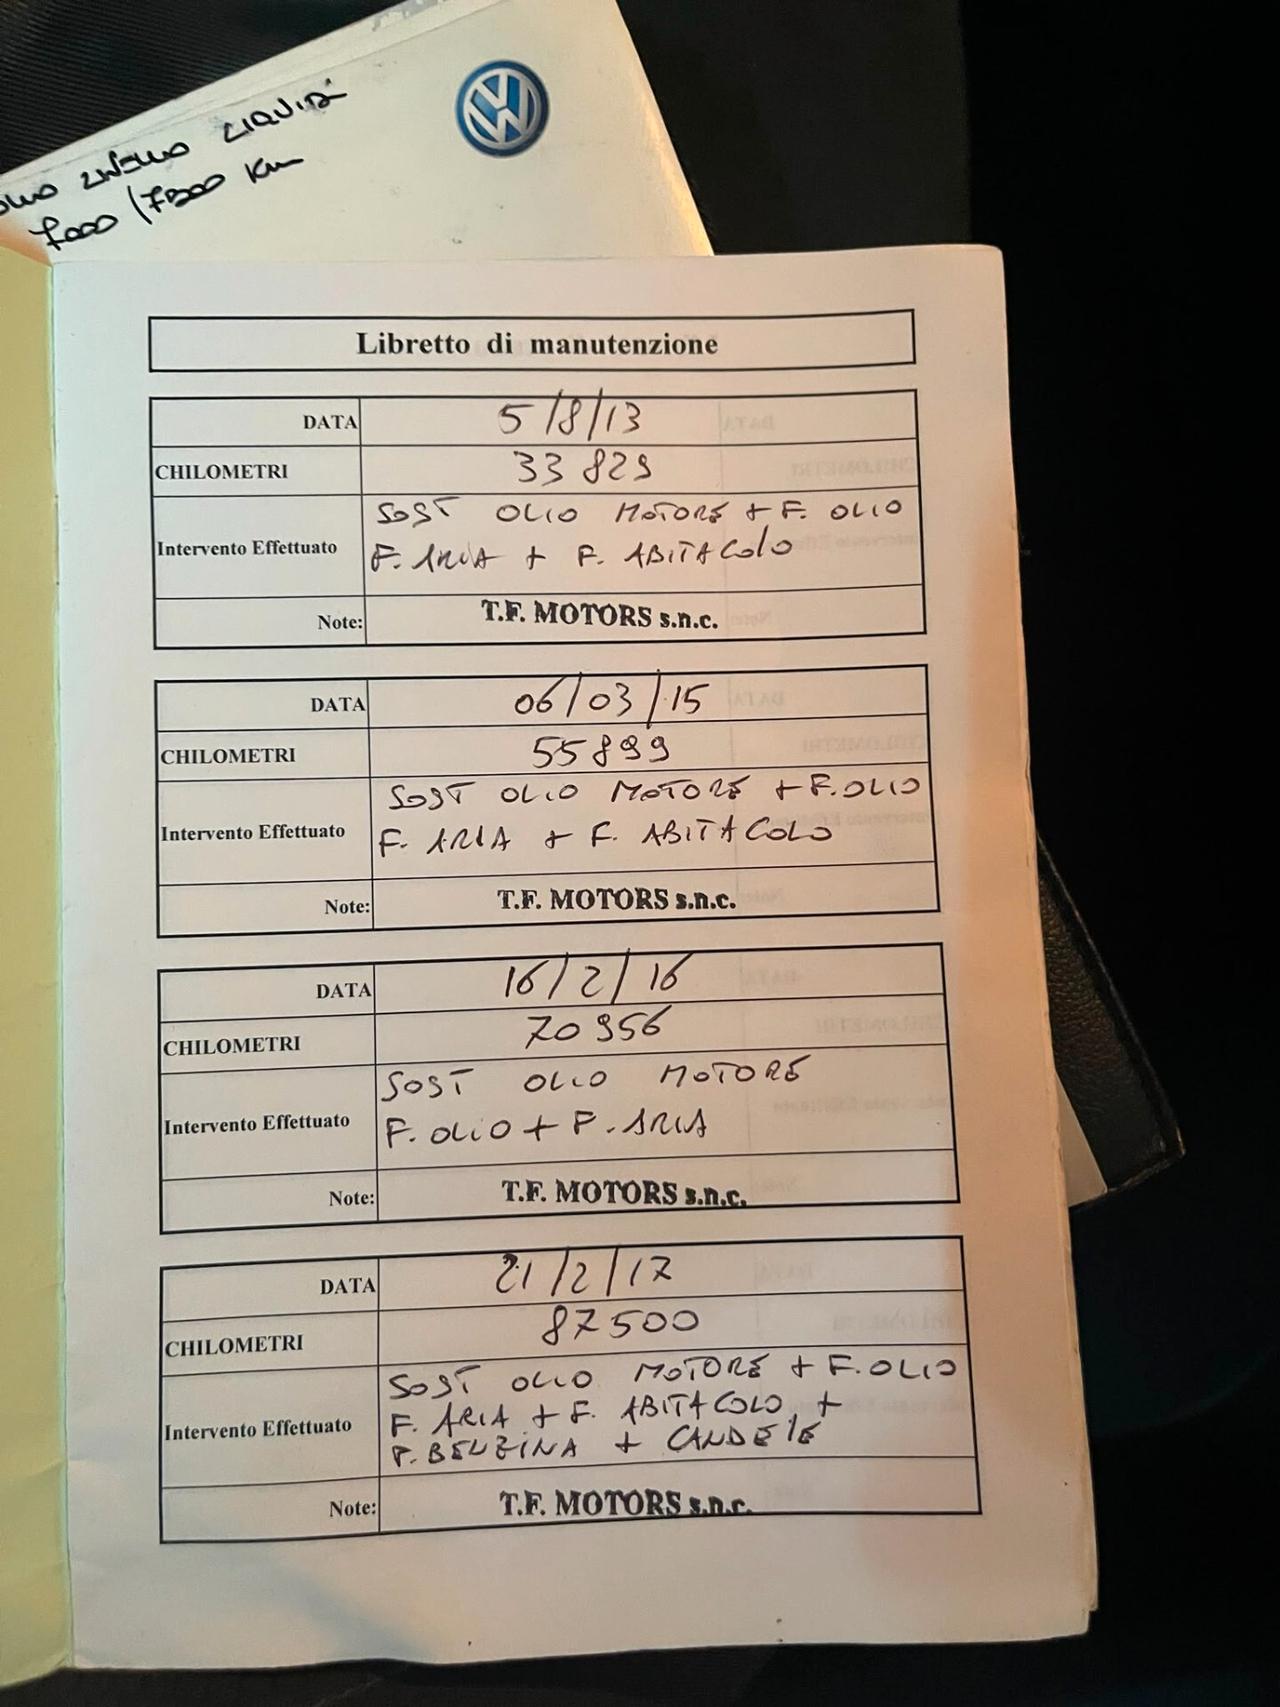 LIQUIDI
7000/7500 Km
Libretto di manutenzione
DATA 5/8/13
CHILOMETRI 33 829
Intervento Effettuato SOST OLIO MOTORE + F. OLIO
F. ARIA + F. ABITACOLO
Note: T.F. MOTORS s.n.c.
DATA 06/03/15
CHILOMETRI 55899
Intervento Effettuato SOST OLIO MOTORE + F. OLIO
F. ARIA + F. ABITACOLO
Note: T.F. MOTORS s.n.c.
DATA 16/2/16
CHILOMETRI 70956
Intervento Effettuato SOST OLIO MOTORE
F. OLIO + F. ARIA
Note: T.F. MOTORS s.n.c.
DATA 21/2/17
CHILOMETRI 87500
Intervento Effettuato SOST OLIO MOTORE + F. OLIO
F. ARIA + F. ABITACOLO +
F. BENZINA + CANDELE
Note: T.F. MOTORS s.n.c.